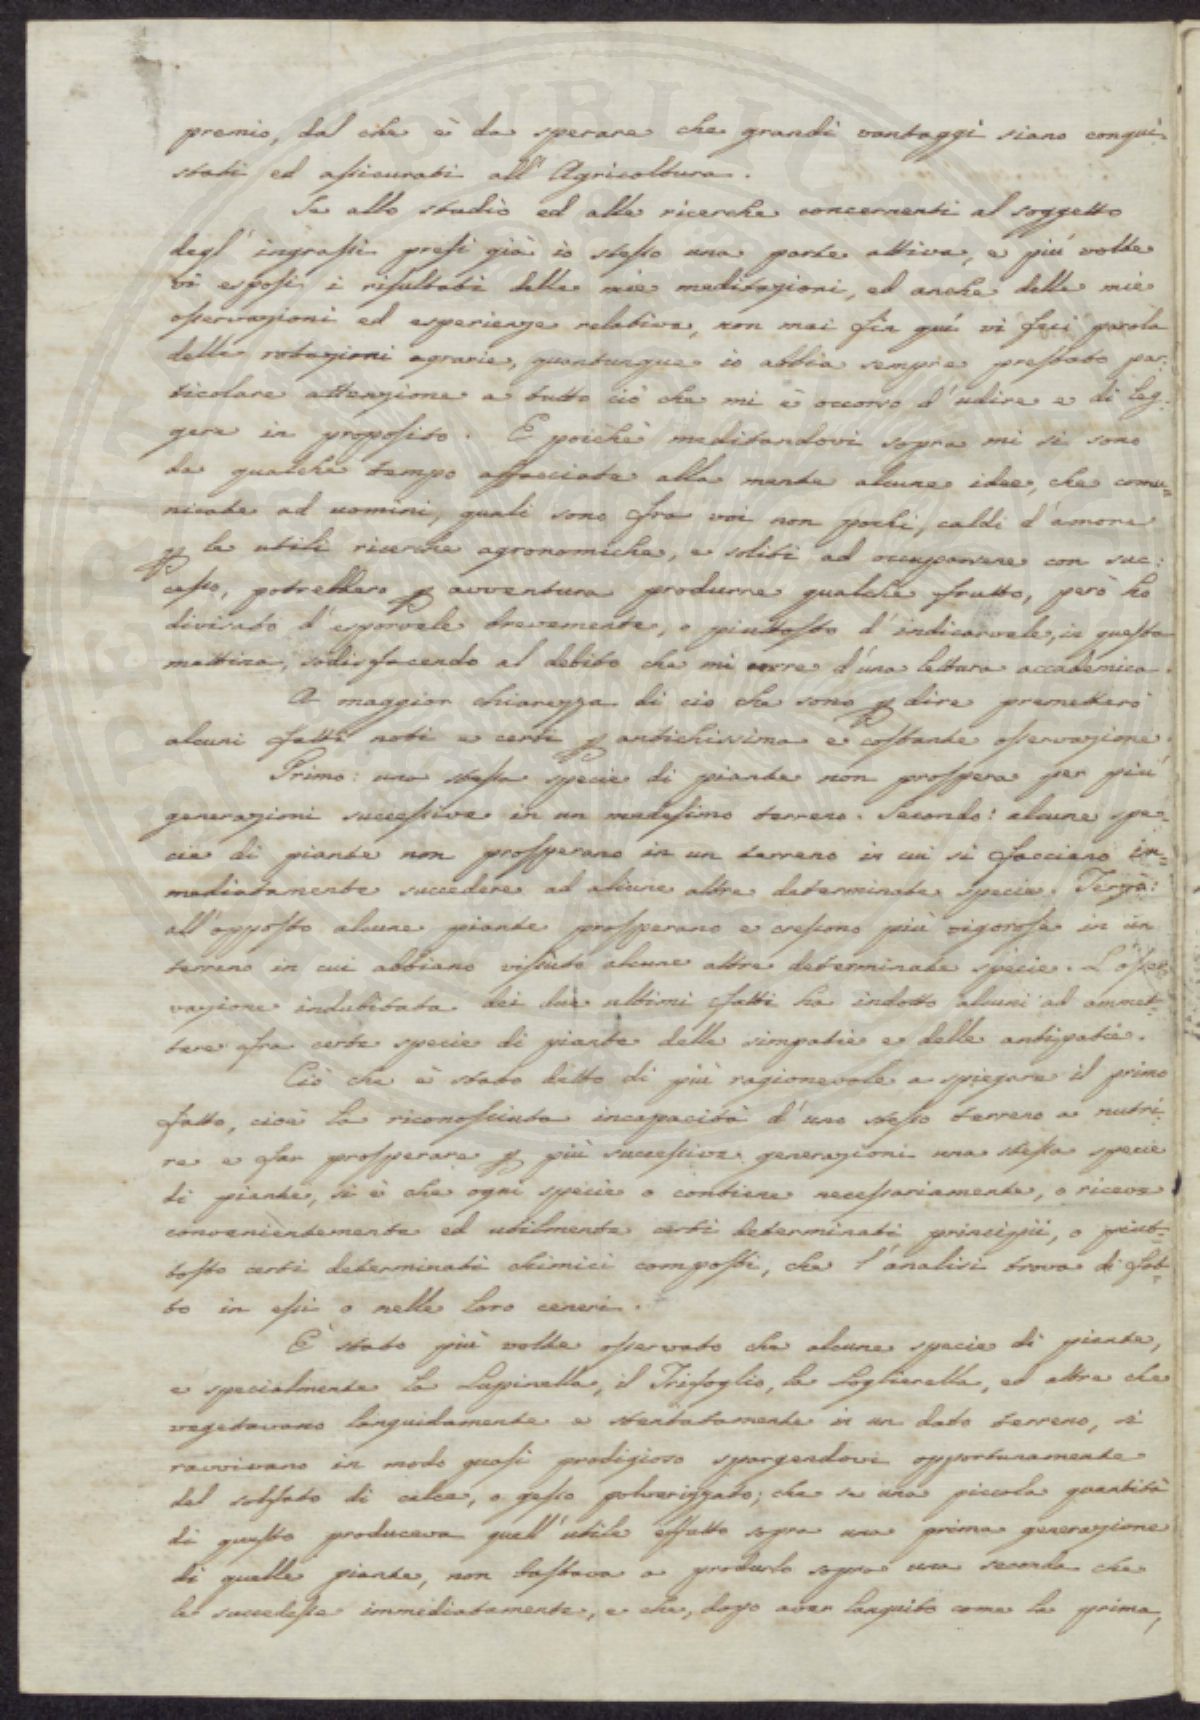 premio, dal che è da sperare che grandi vantaggi siano conqui-
stati ed assicurati all'Agricoltura.
Se allo studio ed alle ricerche concernenti al soggetto
degl'ingrassi presi già io stesso una parte attiva, e più volte
vi esposi i risultati delle mie meditazioni, ed anche delle mie
osservazioni ed esperienze relative, non mai fin quì vi feci parola
delle rotazioni agrarie, quantunque io abbia sempre prestato par-
ticolare attenzione a tutto ciò che mi è occorso d'udire e di leg-
gere in proposito. E poichè meditandovi sopra mi si sono
da qualche tempo affacciate alla mente alcune idee, che comu-
nicate ad uomini, quali sono fra voi non pochi, caldi d'amore
p le utili ricerche agronomiche, e soliti ad occuparsene con suc:
cesso, potrebbero p avventura produrre qualche frutto, però ho
divisato d'esporvele brevemente, o piuttosto d'indicarvele, in questa
mattina, sodisfacendo al debito che mi corre d'una lettura accademica.
A maggior chiarezza di ciò che sono p dire premetterò
alcuni fatti noti e certi p antichissima e costante osservazione.
Primo: una stessa specie di piante non prospera per più
generazioni successive in un medesimo terreno. Secondo: alcune spe-
cie di piante non prosperano in un terreno in cui si facciano im-
mediatamente succedere ad alcune altre determinate specie. Terzo:
all'opposto alcune piante prosperano e crescono più vigorose in un
terreno in cui abbiano vissuto alcune altre determinate specie. L'osser
vazione indubitata dei due ultimi fatti ha indotto alcuni ad ammet-
tere fra certe specie di piante delle simpatie e delle antipatie.
Ciò che è stato detto di più ragionevole a spiegare il primo
fatto, cioè la riconosciuta incapacità d'uno stesso terreno a nutri-
re e far prosperare p più successive generazioni una stessa specie
di piante, si è che ogni specie o contiene necessariamente, o riceve
convenientemente ed utilmente certi determinati principii, o piut-
tosto certi determinati chimici composti, che l'analisi trova di fat-
to in essi o nelle loro ceneri.
È stato più volte osservato che alcune specie di piante,
e specialmente la Lupinella, il Trifoglio, la Loglierella, ed altre che
vegetavano languidamente e stentatamente in un dato terreno, si
ravvivano in modo quasi prodigioso spargendovi opportunamente
del solfato di calce, o gesso polverizzato; che se una piccola quantità
di questo produceva quell'utile effetto sopra una prima generazione
di quelle piante, non bastava a produrlo sopra una seconda che
le succedesse immediatamente, e che, dopo aver languito come la prima,